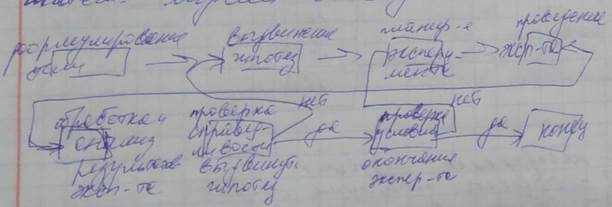 формулирование
цели
выдвижение
гипотез
планир-е
экспери-
мента
проведение
эксп-та
нет
нет
обработка и
анализ
результатов
эксп-та
проверка
справед-
ливости
выдвинут.
гипотез
да
проверка
условия
окончания
экспер-та
да
конец